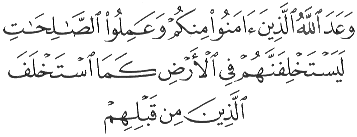 وَعَدَ ٱللَّهُ ٱلَّذِينَ ءَامَنُوا۟ مِنكُمْ وَعَمِلُوا۟ ٱلصَّـٰلِحَـٰتِ
لَيَسْتَخْلِفَنَّهُمْ فِى ٱلْأَرْضِ كَمَا ٱسْتَخْلَفَ
ٱلَّذِينَ مِن قَبْلِهِمْ